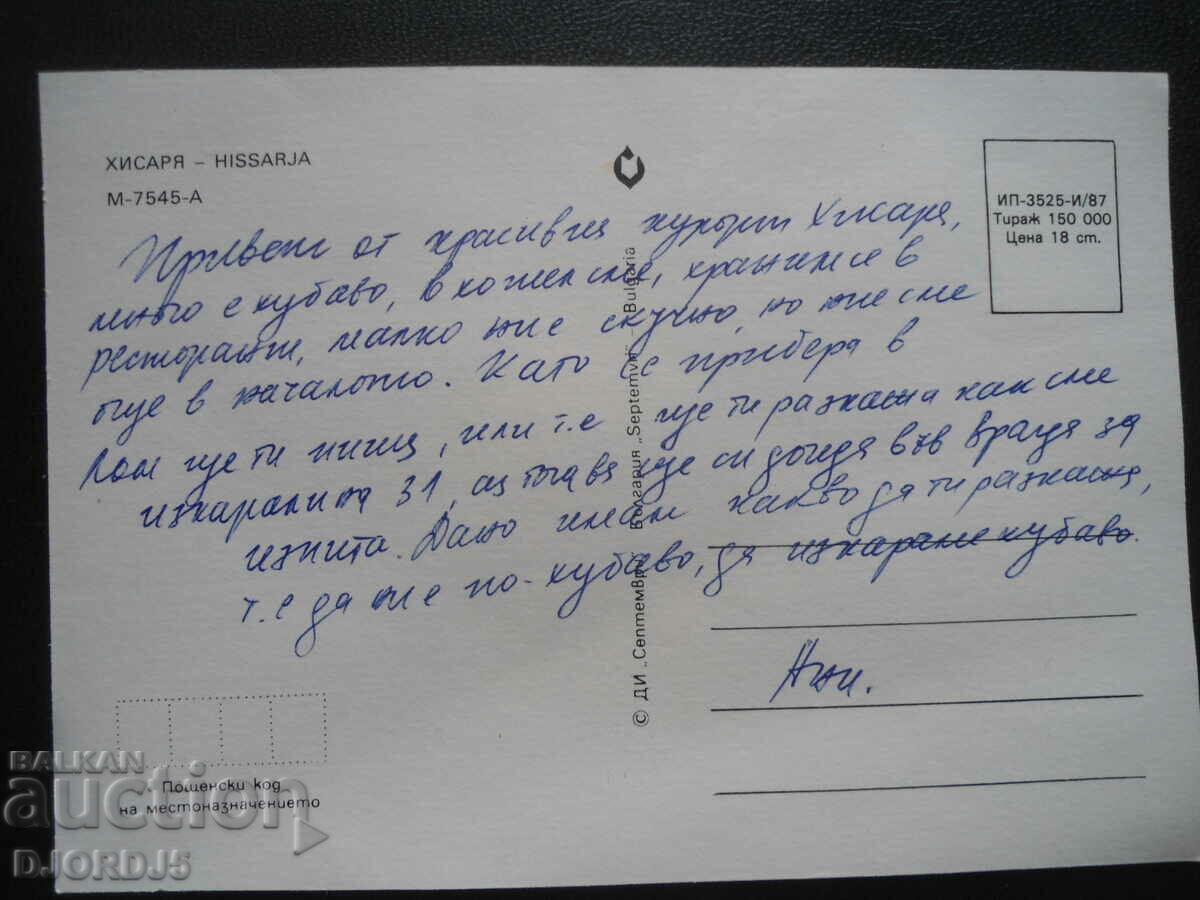 ХИСАРЯ – HISSARJA
М-7545-А
ИП-3525-И/87
Тираж 150 000
Цена 18 ст.
Привет от красивия курорт Хисаря,
много е хубаво, в хотел сме, храним се в
ресторант, малко ни е скучно, но ние сме
още в началото. Като се прибера в
Лом ще ти пиша, или т.е ще ти разкажа как сме
изкарали на 31, а тогава ще си дойда във Враца за
изпита. Дано имам какво да ти разкажа,
т.е да ни е по-хубаво, да изкараме хубаво.
Ани.
© ДИ „Септември" – България „Septemvri" – Bulgaria
Пощенски код
на местоназначението
BALKAN
auction
DJORDJ5